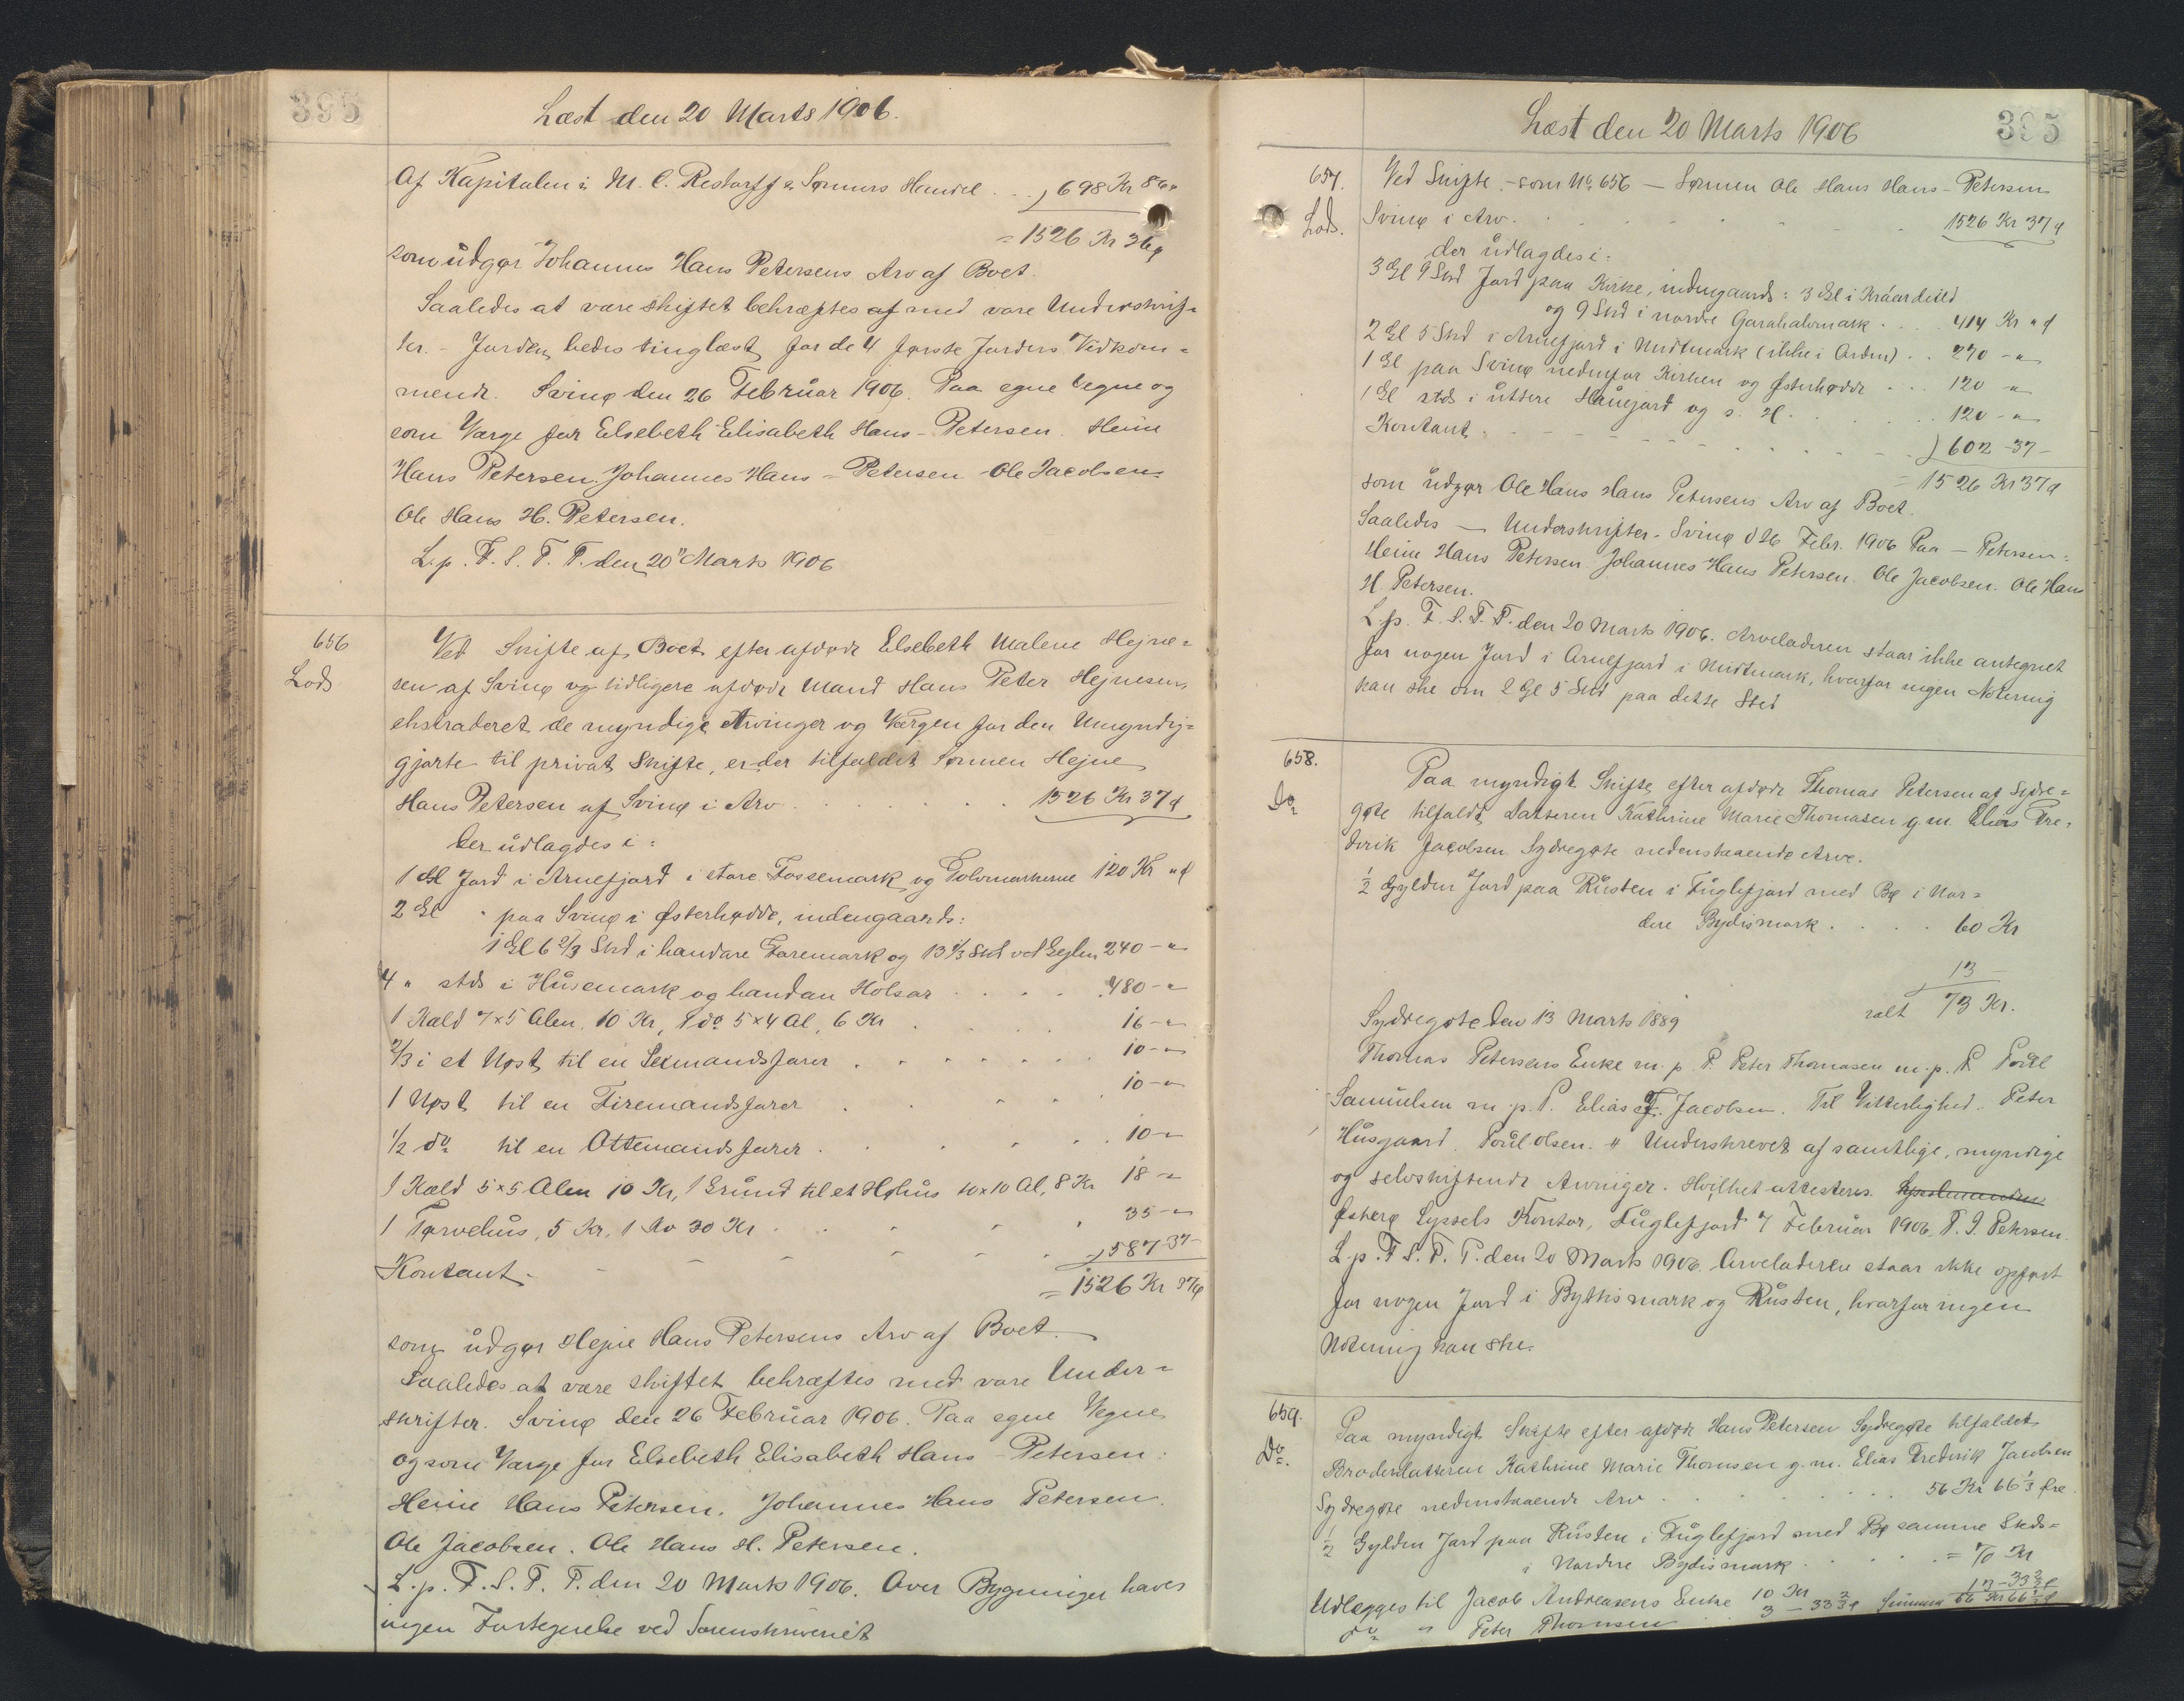 395
Læst den 20 Marts 1906.
Af Kapitalen i M. C. Restorff & Sønners Handel . . 698 Kr 86 ø
= 1526 Kr 36 ø
som udgør Johannes Hans Petersens Arv af Boet.
Saaledes at være skiftet bekræftes af med vore Underskrif=
ter. - Jorden bedes tinglæst for de 4 første Jorders Vedkom=
mende. Svinø den 26 Februar 1906. Paa egne Vegne og
som Værge for Elsebeth Elisabeth Hans-Petersen. Heine
Hans Petersen. Johannes Hans-Petersen Ole Jacobsen
Ole Hans H. Petersen.
L. p. F. S. T. P. den 20 Marts 1906
656
Lods
Ved Skifte af Boet efter afdøde Elsebeth Malene Hejne=
sen af Svinø og tidligere afdøde Mand Hans Peter Hejnesen,
ekstraderet de myndige Arvinger og Værgen for den Umyndig=
gjorte til privat Skifte, er der tilfaldet Sønnen Hejne
Hans Petersen af Svinø i Arv . . . 1526 Kr 37 ø
der udlagdes i:
1 Gl Jord i Arnefjord i store Fossemark og Tolvmarkerne 120 Kr " ø
2 Gl " paa Svinø i Østerhødde, indengaards:
1 Gl 6 2/3 Skd i handare Faremark og 13 1/3 Skd ved Gejlen 240 - "
4 " stds i Husemark og handan Holsar . . . . 480 - "
1 Kald 7 x 5 Alen, 10 Kr, 1 do 5 x 4 Al, 6 Kr . . . 16 - "
2/3 i et Nøst til en Sexmandsfarer . . . . . . 10 - "
1 Nøst til en Firemandsfarer . . . . 10 - "
1/2 do til en Ottemandsfarer . . . . 10 - "
1 Kæld 5 x 5 Alen 10 Kr, 1 Grund til et Høhus 10 x 10 Al, 8 Kr 18 - "
1 Tørvehus, 5 Kr, 1 Ko 30 Kr . . . . 35 - "
Kontant - - - - . 587 37 -
= 1526 Kr 37 ø
som udgør Hejne Hans Petersens Arv af Boet.
Saaledes at være skiftet bekræftes med vore Under=
skrifter. Svinø den 26 Februar 1906. Paa egne Vegne
og som Værge for Elsebeth Elisabeth Hans-Petersen:
Heine Hans Petersen. Johannes Hans Petersen.
Ole Jacobsen. Ole Hans H. Petersen.
L. p. F. S. T. P. den 20 Marts 1906. Over Bygninger haves
ingen Fortegnelse ved Sorenskriveriet
Læst den 20 Marts 1906
395
657.
Lods.
Ved Skifte - som No 656 — Sønnen Ole Hans Hans-Petersen
Svinø i Arv . . . . . . 1526 Kr 37 ø
der udlagdes i:
3 Gl 9 Skd Jord paa Kirke, indengaards: 3 Gl i Kráardeild
og 9 Skd i nordre Garahalvmark . . . 414 Kr " ø
2 Gl 5 Skd i Arnefjord i Midtmark (ikke i Orden) . . 270 - "
1 Gl paa Svinø nedenfor Kirken og Østerhødde . . . 120 - "
1 Gl stds i uttere Haugard og s. H. . . . . 120 - "
Kontant . - - - - - 602 - 37 -
= 1526 Kr 37 ø
som udgør Ole Hans Hans Petersens Arv af Boet.
Saaledes — Underskrifter. Svinø d 26 Febr. 1906 Paa — Petersen:
Heine Hans Petersen. Johannes Hans Petersen. Ole Jacobsen. Ole Hans
H. Petersen.
L. p. F. S. T. P. den 20 Marts 1906. Arveladeren staar ikke antegnet
for nogen Jord i Arnefjord i Midtmark, hvorfor ingen Notering
kan ske om 2 Gl 5 Skd paa dette Sted
658.
Do
Paa myndigt Skifte efter afdøde Thomas Petersen af Sydre=
gøte tilfaldt Datteren Kathrine Marie Thomasen g. m. Elias Fre=
derik Jacobsen Sydregøte nedenstaaende Arv.
1/2 Gylden Jord paa Rusten i Fuglefjord med Bø i Nor=
dere Bydismark . . . . 60 Kr
13
ialt 73 Kr.
Sydregøte den 13 Marts 1889
Thomas Petersens Enke m. p. P. Peter Thomasen m. p. P. Poul
Samuelsen m. p. P. Elias F. Jacobsen. Til Vitterlighed. Peter
Husgaard. Poul Olsen. " Underskrevet af samtlige, myndige
og selvskiftende Arvinger. Hvilket attesteres. Sysselmanden
Østerø Syssels Kontor, Fuglefjord 7 Februar 1906. P. I. Petersen.
L. p. F. S. T. P. den 20 Marts 1906. Arveladeren staar ikke opført
for nogen Jord i Byttismark og Rusten, hvorfor ingen
Notering kan ske.
659.
Do.
Paa myndigt Skifte efter afdøde Hans Petersen Sydregøte tilfaldet
Broderdatteren Kathrine Marie Thomsen g. m. Elias Frederik Jacobsen
Sydregøte nedenstaaende Arv . . . . . . 56 Kr 66 1/3 Øre.
1/2 Gylden Jord paa Rusten i Fuglefjord med Bø samme Steds=
i Nordre Bydismark . . . . = 70 Kr
Udlægges til Jacob Andreasens Enke 10 Kr
do " Peter Thomsen 3 - 33 2/3 ø Summa 13 - 33 2/3 ø
56 Kr 66 1/3 ø